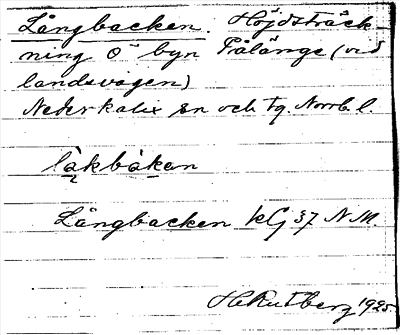 Långbacken. Höjdsträck-
ning Ö byn Pålänge (vid
landsvägen)
Nederkalix sn och tg. Norrb. l.
làkbàken
Långbacken kG 37 N.M.
H. Rutberg 1925.